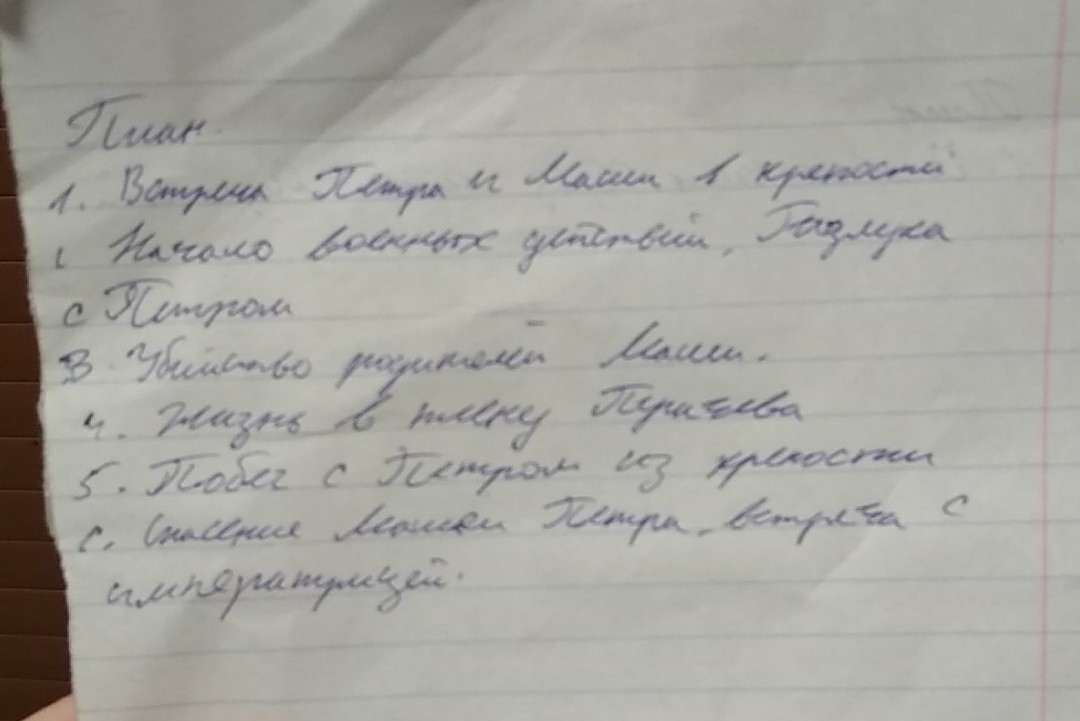 План.
1. Встреча Петра и Маши в крепости
Начало военных действий, Разлука
с Петром
3. Убийство родителей Маши.
4. Жизнь в плену Пугачева
5. Побег с Петром из крепости
6. Спасение Машей Петра, встреча с
императрицей.